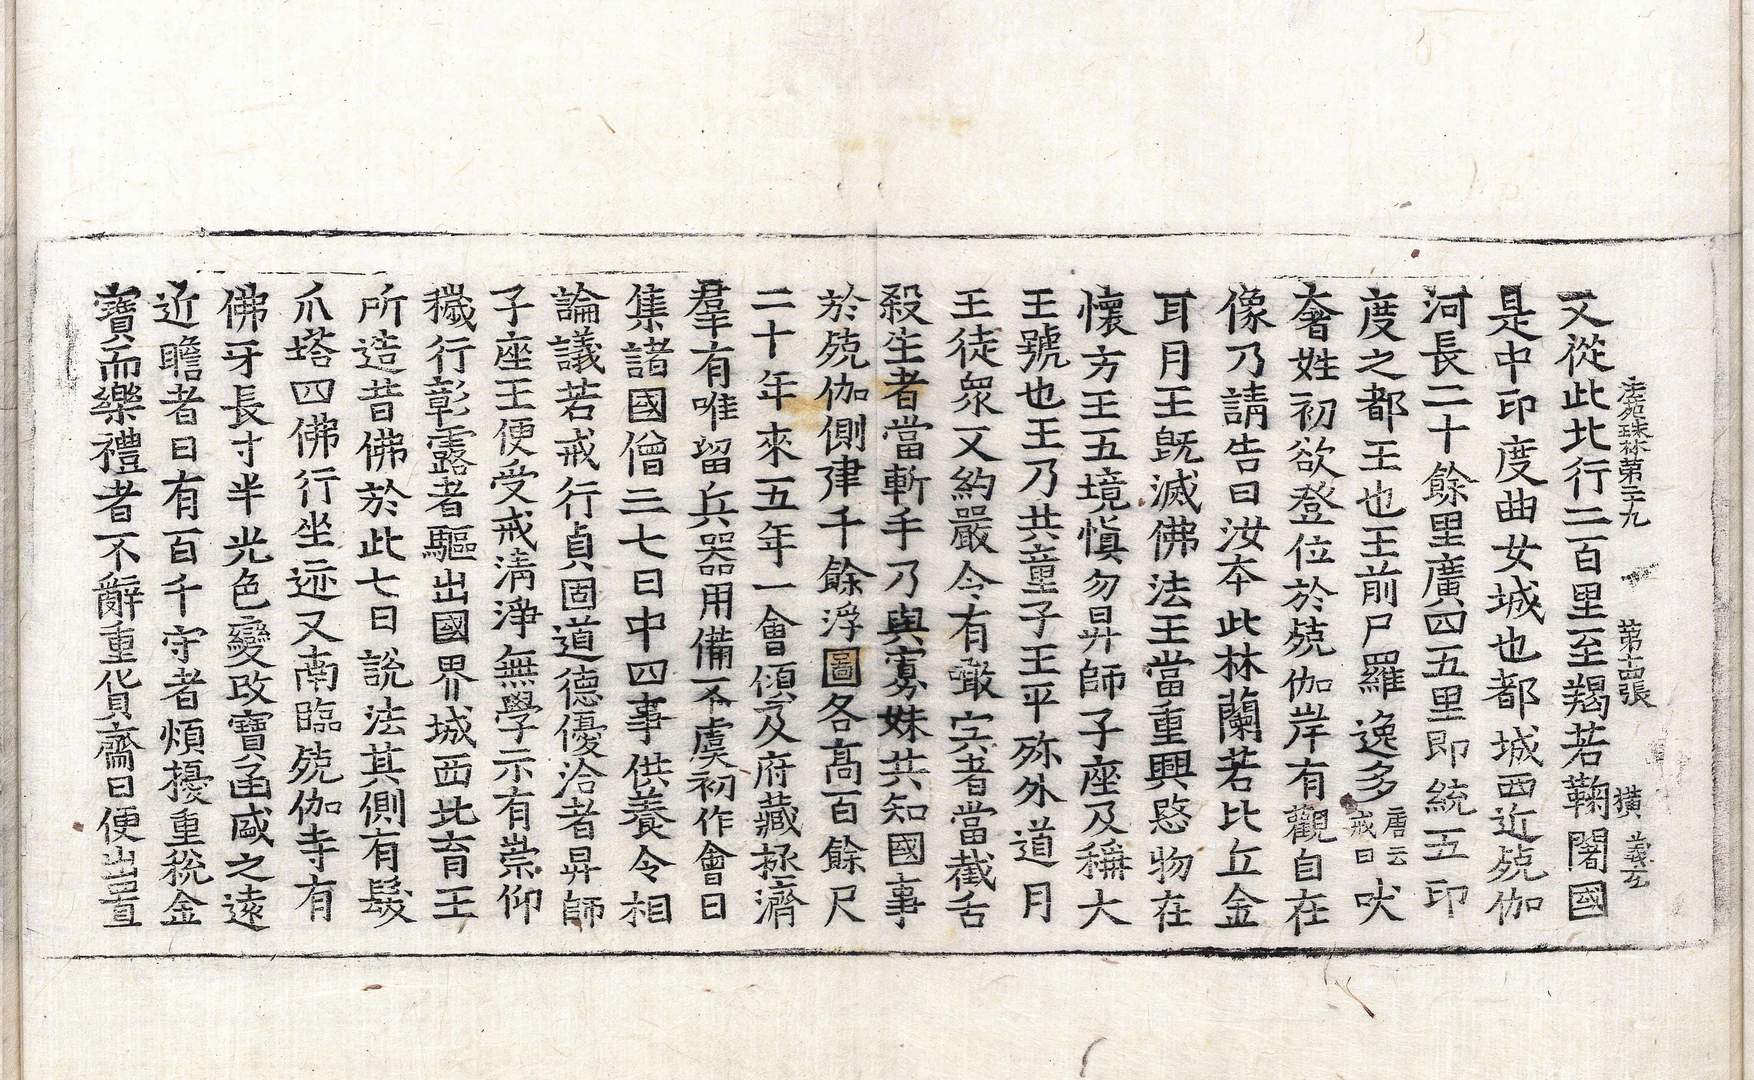 法苑珠林第二十九　第十四張　橫　義玄
又從此北行二百里至羯若鞠闍國
是中印度曲女城也都城西近殑伽
河長二十餘里廣四五里即統五印
度之都王也王前尸羅逸多唐云戒日吠
奢姓初欲登位於殑伽岸有觀自在
像乃請告曰汝本此林蘭若比丘金
耳月王旣滅佛法王當重興愍物在
懷方王五境慎勿昇師子座及稱大
王號也王乃共童子王平殄外道月
王徒衆又約嚴令有噉宍者當截舌
殺生者當斬手乃與寡妹共知國事
於殑伽側建千餘浮圖各高百餘尺
二十年來五年一會傾及府藏拯濟
羣有唯留兵器用備不虞初作會日
集諸國僧三七日中四事供養令相
論議若戒行貞固道德優洽者昇師
子座王便受戒清淨無學示有崇仰
穢行彰露者驅出國界城西北育王
所造昔佛於此七日說法其側有髮
爪塔四佛行坐迹又南臨殑伽寺有
佛牙長寸半光色變改寶函盛之遠
近瞻者日有百千守者煩擾重稅金
寶而樂禮者不辭重貨齋日便出置